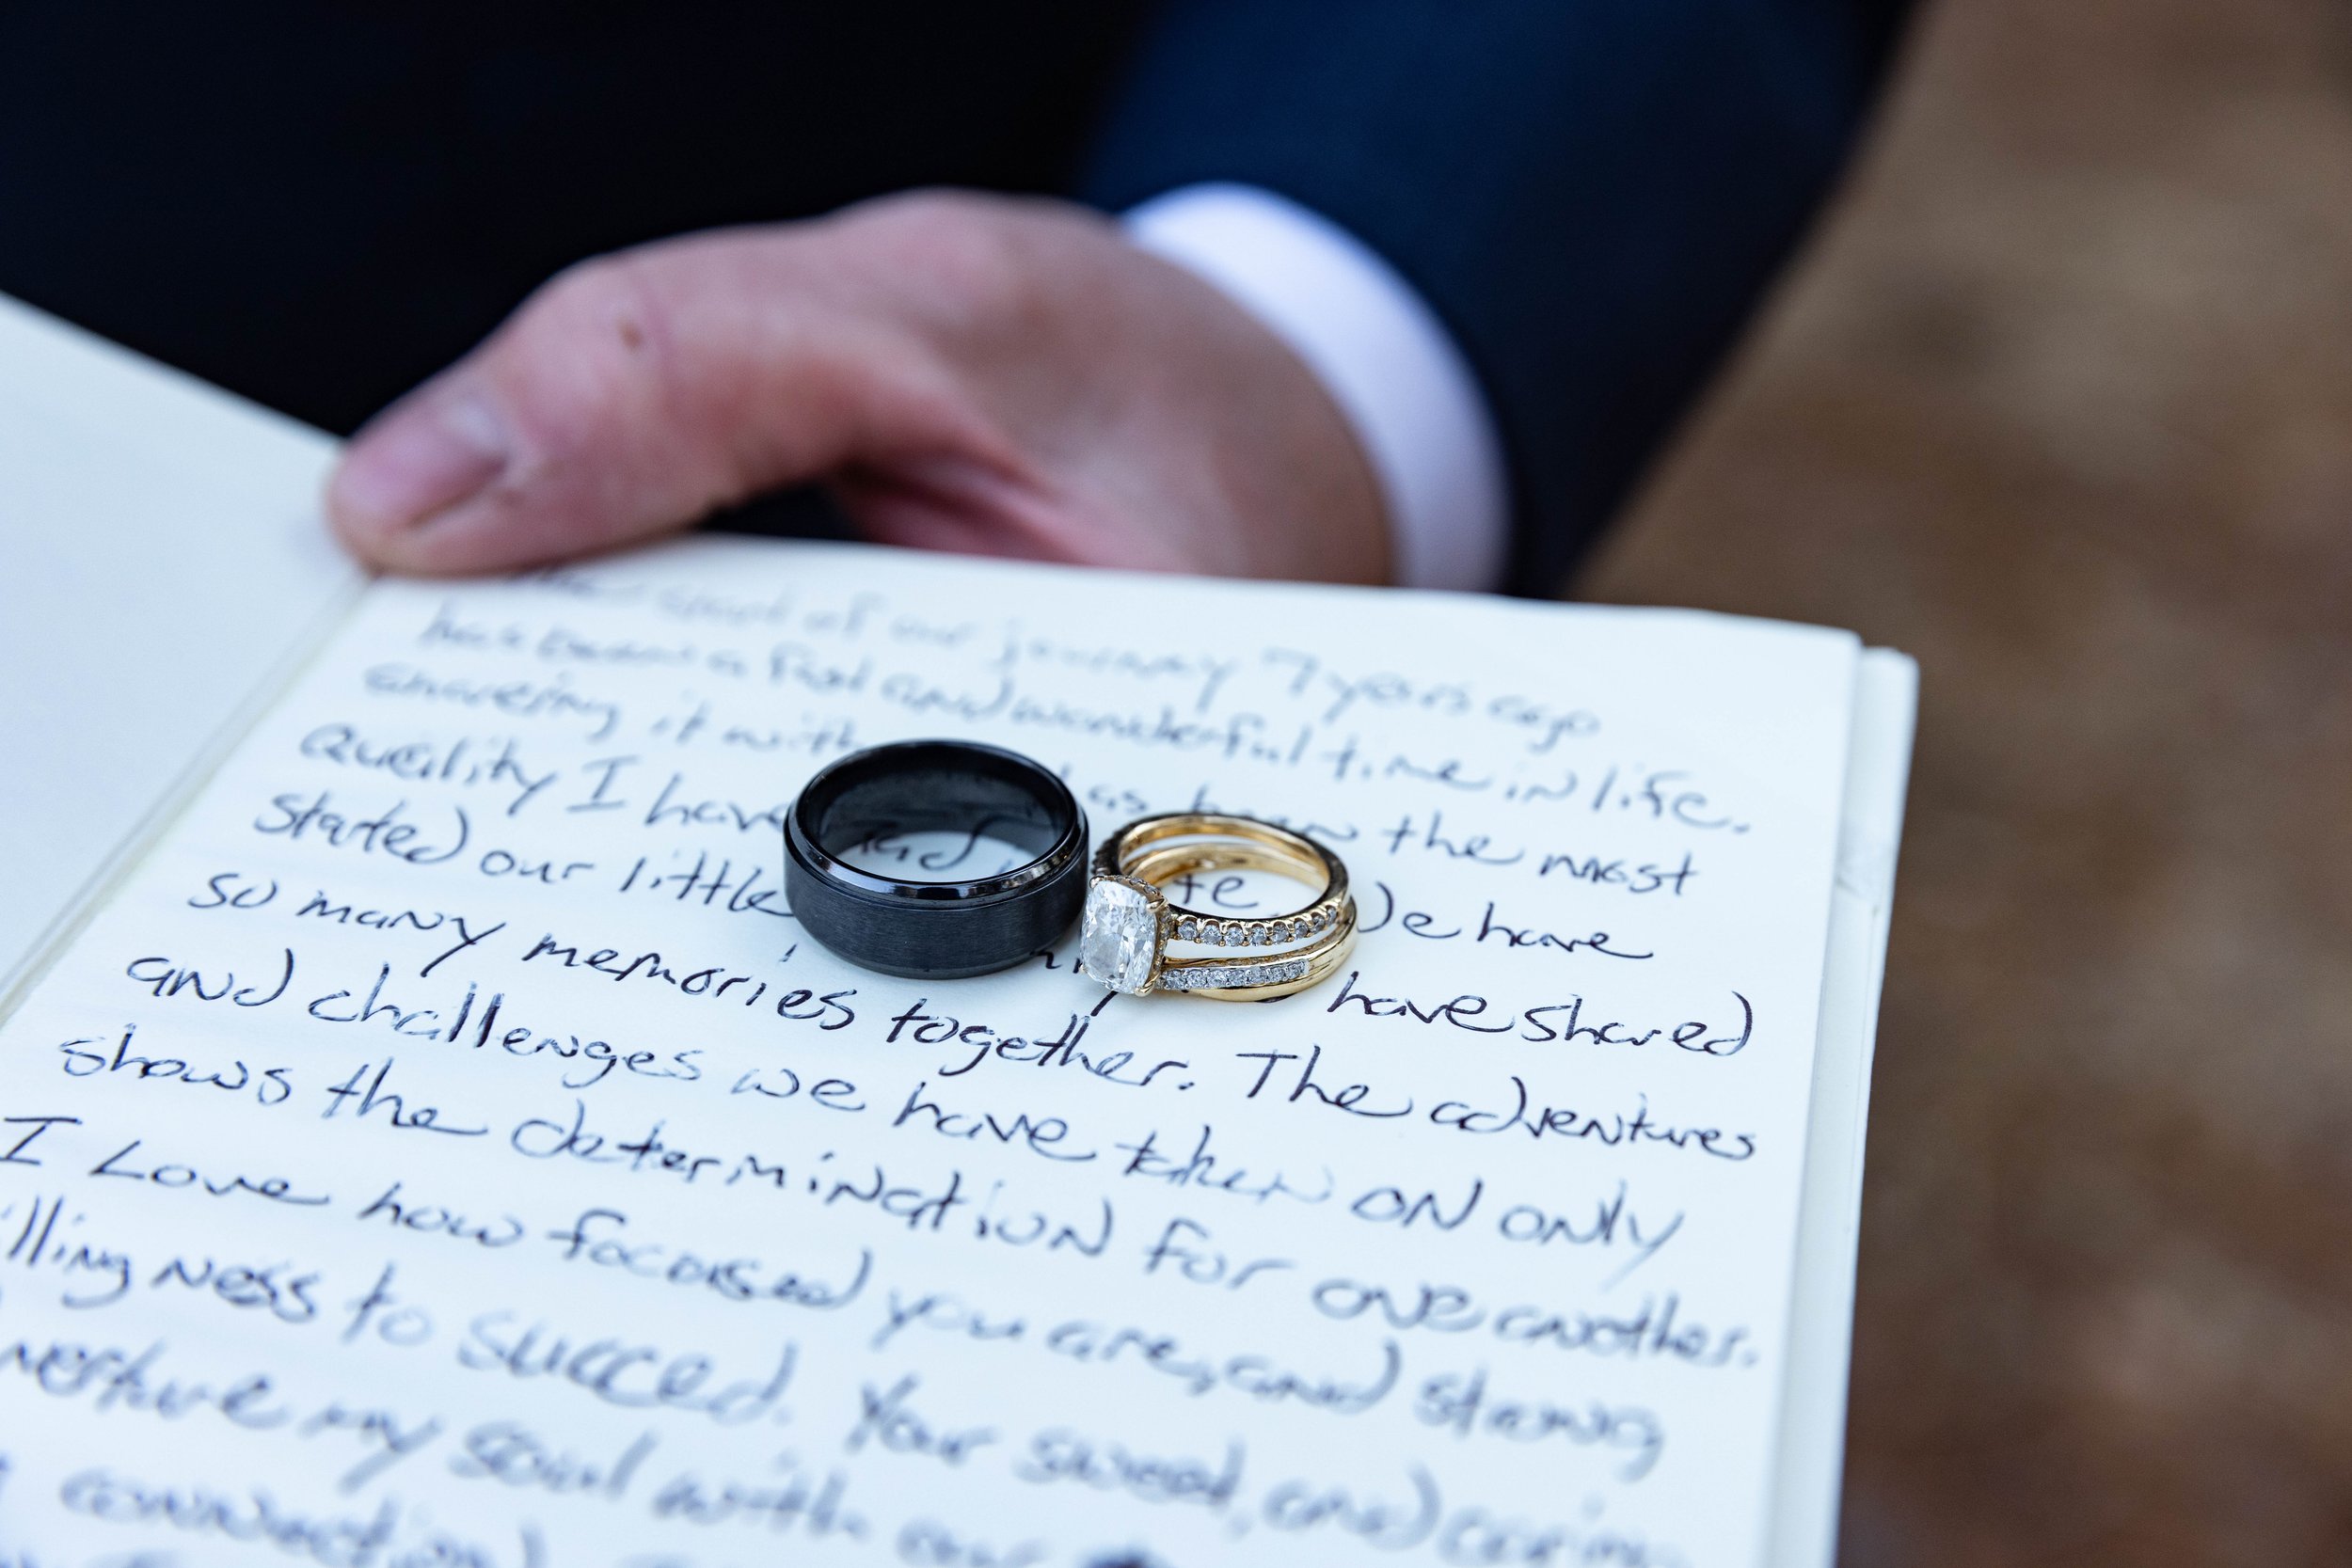 the start of our journey 7 years ago
has been a fast and wonderful time in life.
sharing it with as been the most
quality I have had
stated our little We have
so many memories together. have shared
and challenges we have taken on only The adventures
shows the determination for one another.
I Love how focused you are, and strong
illing ness to succeed. Your sweet, and caring
my soul with our
connection